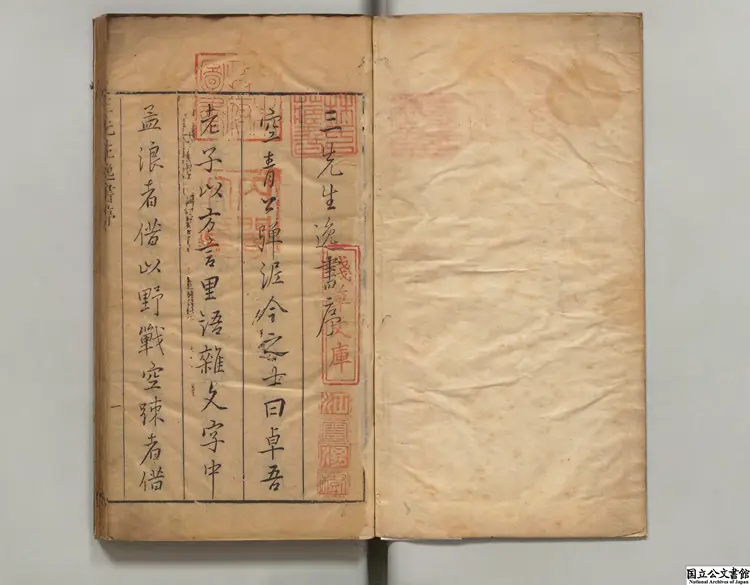 三先生逸書序
空青公彈泥吟客士曰卓吾
老子以方言里語雜文字中
孟浪者借以野戰空踈者借
三先生逸書序
一
淺草文庫
国立公文書館
National Archives of Japan